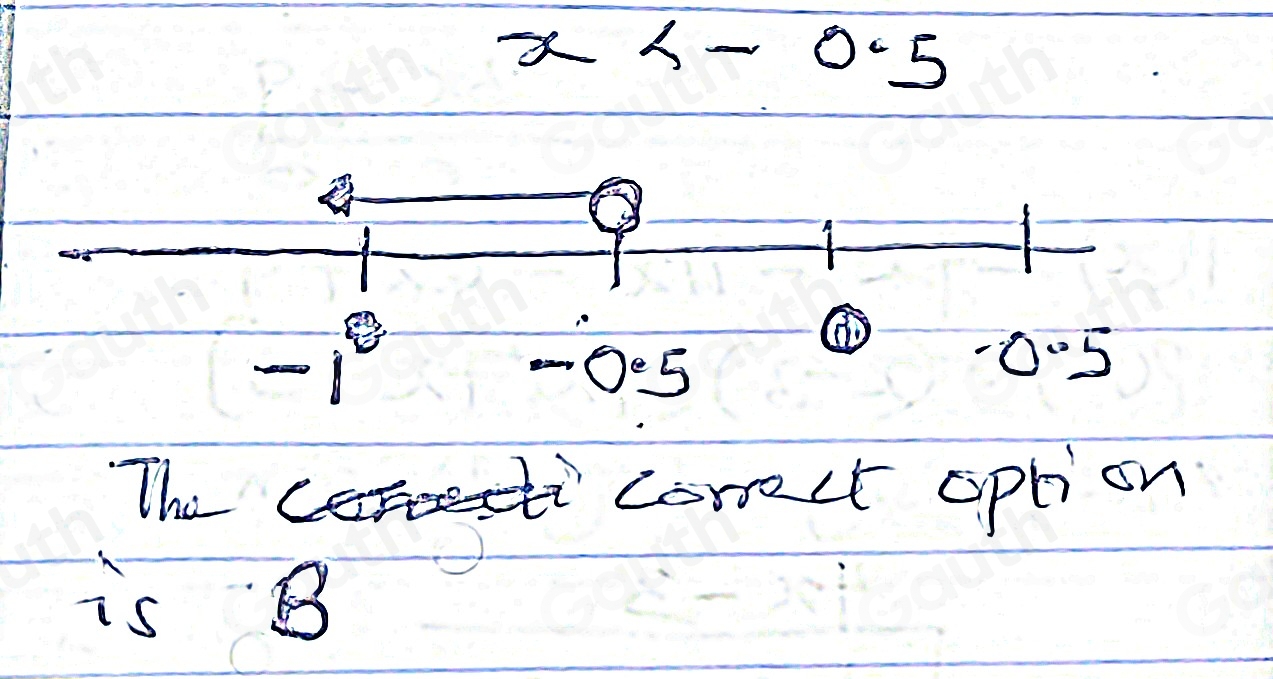 x < - 0.5
-1 -0.5 0.5
The correct option
is B